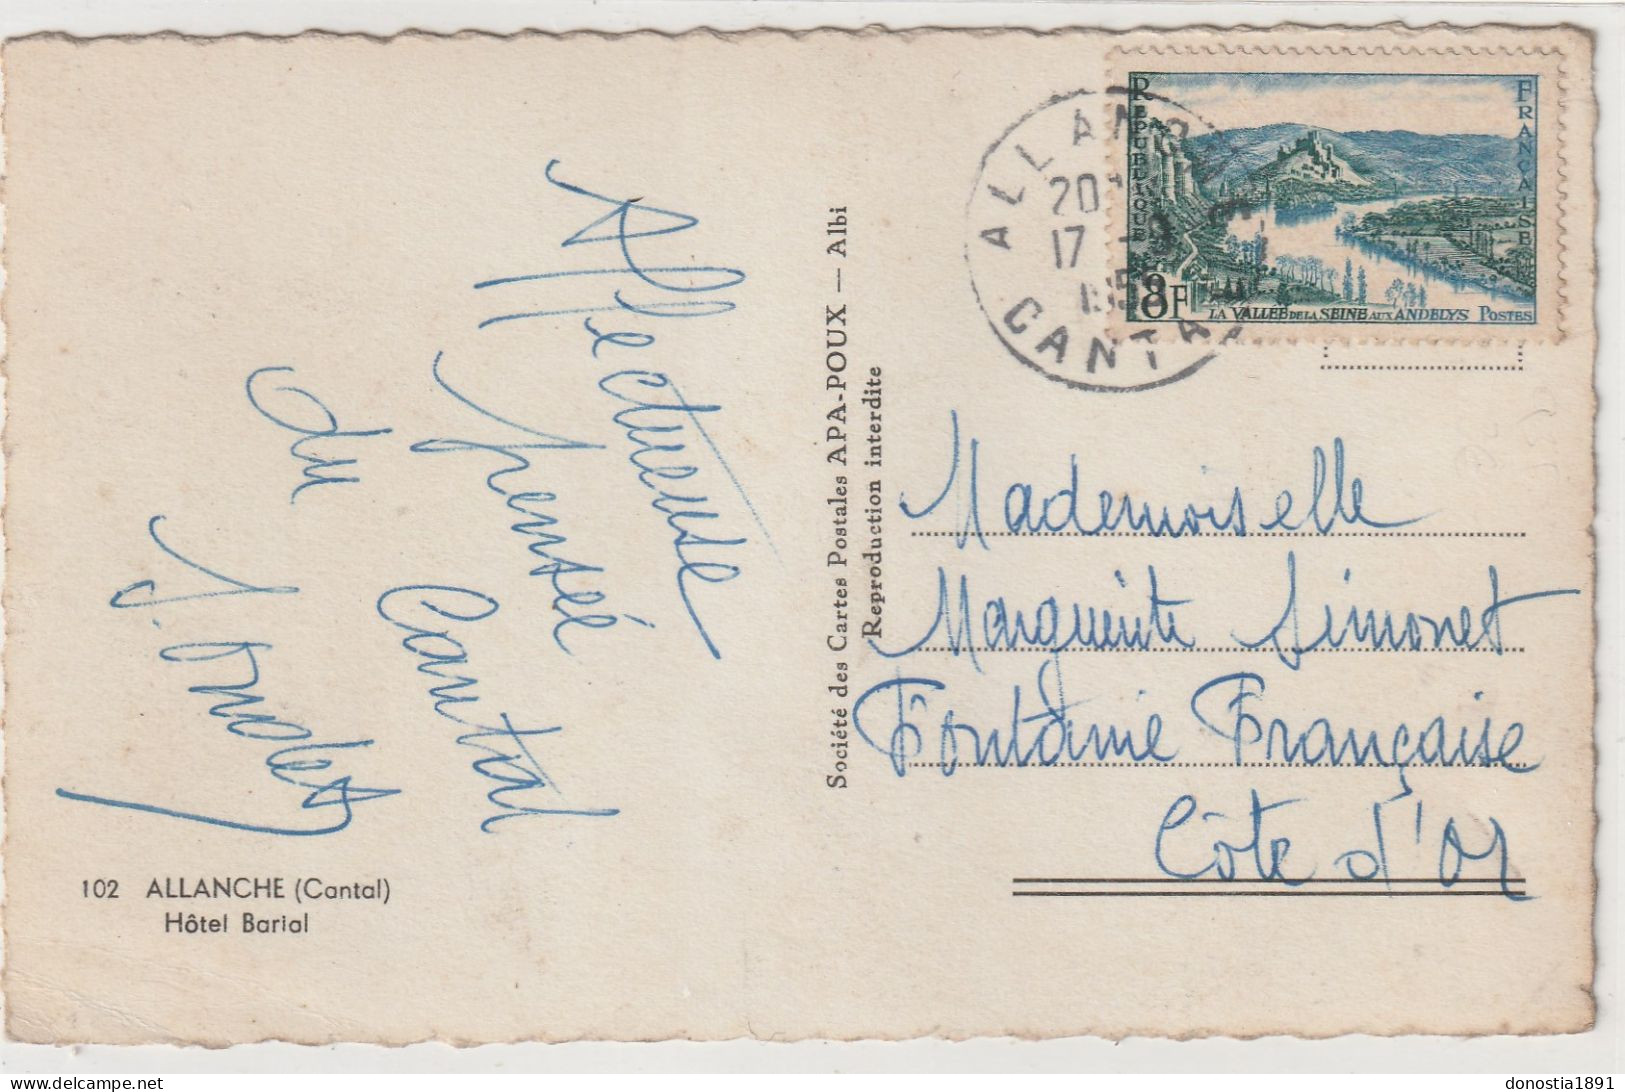 Affectueuse
pensée
du Cantal
102 ALLANCHE (Cantal)
Hôtel Barial
Société des Cartes Postales APA-POUX — Albi
Reproduction interdite
ALLANCHE
20
17 -9
195
CANTAL
REPUBLIQUE FRANÇAISE
8F
LA VALLÉE DE LA SEINE AUX ANDELYS POSTES
Mademoiselle
Marguerite Simonet
Fontaine Française
Côte d'Or
donostia1891